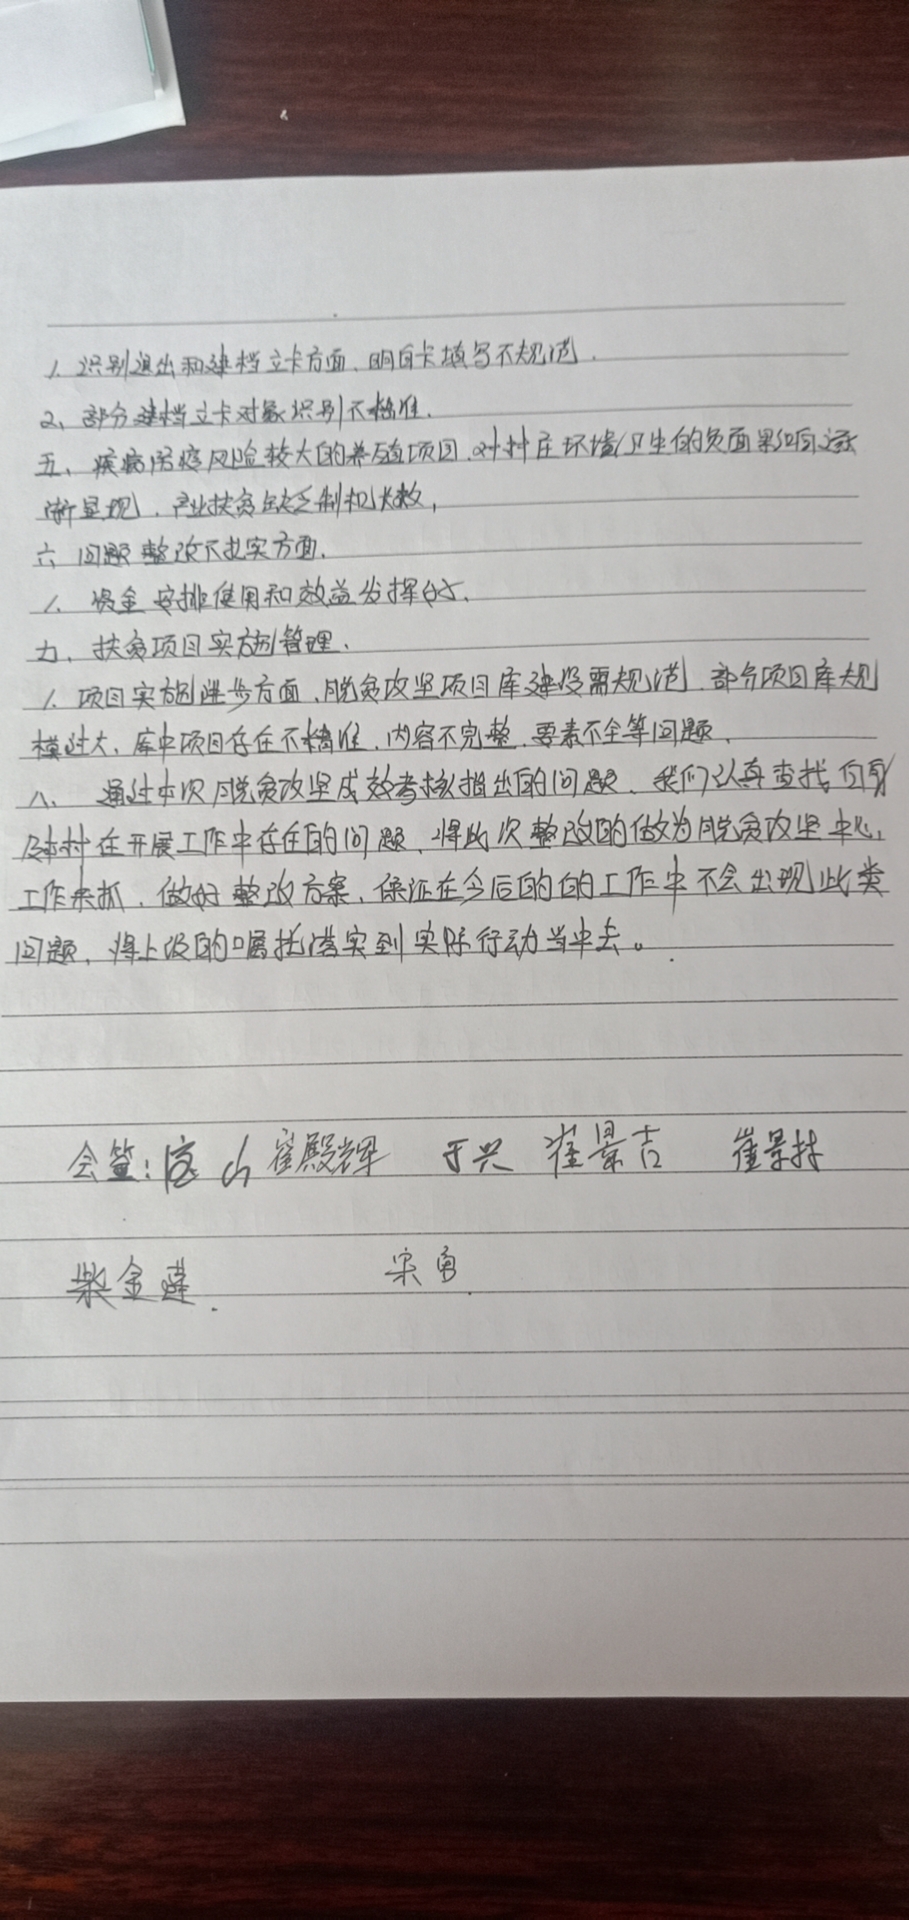 1. 识别退出和建档立卡方面、明白卡填写不规范.
2、部分建档立卡对象识别不精准.
五、疾病防疫风险较大的养殖项目、对村庄环境卫生的负面影响逐
渐显现、产业扶贫缺乏制机长效,
六、问题整改不扎实方面.
1. 资金安排使用和效益发挥
、扶贫项目实施管理.
1. 项目实施进步方面、脱贫攻坚项目库建设需规范、部分项目库规
模过大、库中项目存在不精准、内容不完整、要素不全等问题、
八、通过本次脱贫攻坚成效考核指出的问题、我们认真查找自身
及本村在开展工作中存在的问题、将此次整改的做为脱贫攻坚中心,
工作来抓、做好整改方案、保证在今后的的工作中不会出现此类
问题、将上级的嘱托落实到实际行动当中去。
会签: 崔殿辉 于兴 崔景吉 崔景林
柴金莲. 宋勇.